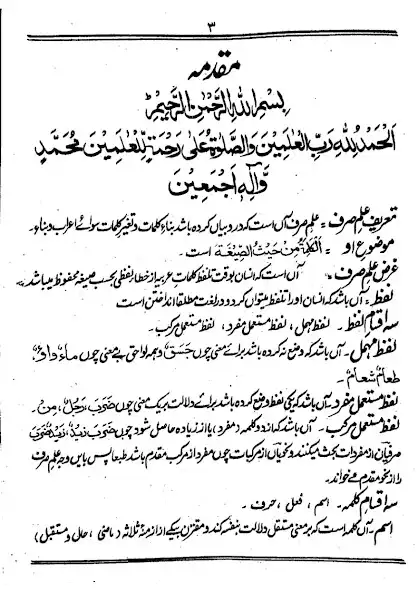 ۳
مقدمه
بسم الله الرحمن الرحیم
الحمد لله رب العلمین والصلوة علی رحمة للعلمین محمد
وآله اجمعین
تعریف علم صرف = علم صرف آں است که در و بیاں کرده باشد بناء کلمات و تغیر کلمات سوائے اعراب و بناء۔
موضوع او = الکلمة من حیث الصیغة است۔
غرض علم صرف = آں است که انسان بوقت تلفظ کلمات عربیه از خطا لفظی بحسب صیغه محفوظ میباشد
لفظ = آں باشد که انسان او را تلفظ میتواں کرد و در لغت مطلقا انداختن است
سه اقسام لفظ۔ لفظ مہمل، لفظ مستعمل مفرد، لفظ مستعمل مرکب۔
لفظ مہمل۔ آں باشد که وضع نه کرده باشد برائے معنی چوں جسق و همه لواحق بے معنی چوں ماء داء،
طعام شعام۔
لفظ مستعمل مفرد۔ آں باشد که یکی لفظ وضع کرده باشد برائے دلالت بر یک معنی چوں ضرب، رجل، من۔
لفظ مستعمل مرکب۔ آں باشد که از دو کلمه (مفرد) یا از زیاده حاصل شود چوں ضرب زید، زید ضرب
صرفیاں از مفردات بحث میکنند و نحویاں از مرکبات چوں مفرد از مرکب مقدم باشد طبعا پس بایں وجه علم صرف
را از نحو مقدم مے خواند۔
سه اقسام کلمه۔ اسم، فعل، حرف۔
اسم۔ آں کلمه است که بر معنی مستقل دلالت بنفسه کند و مقترن بیکے از ازمنۂ ثلاثه (ماضی، حال و مستقبل)